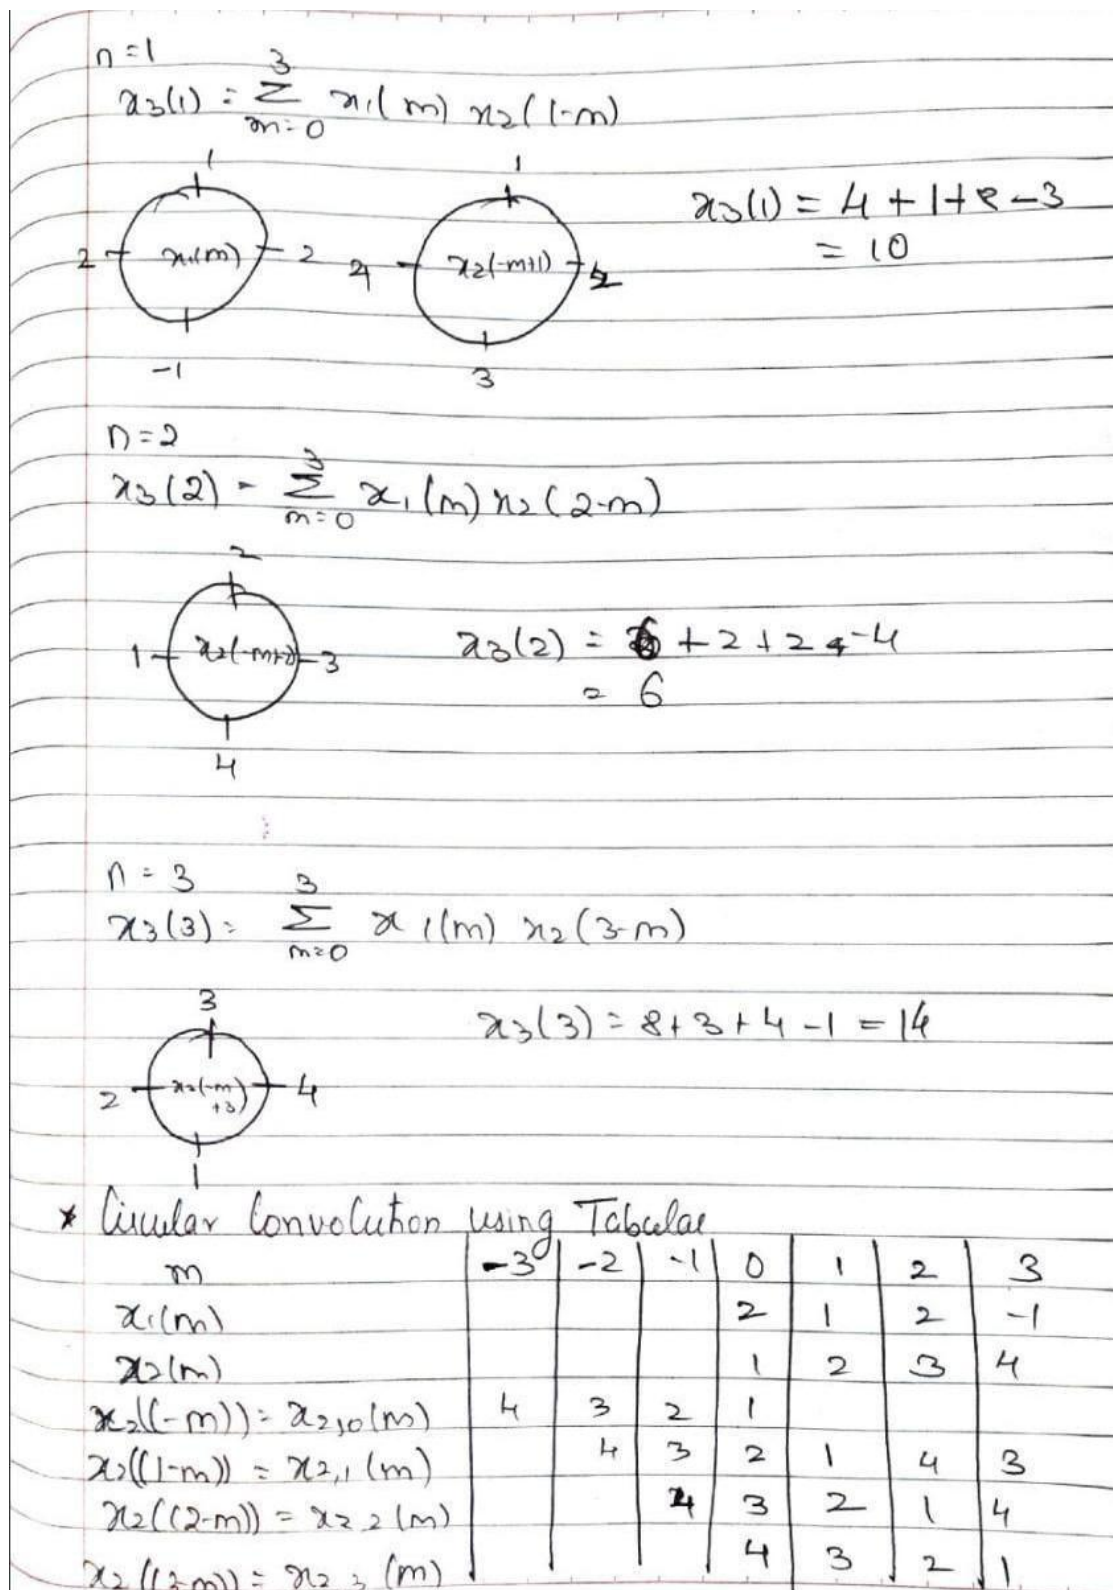 n=1
x3(1) = 3 Σ m=0 x1(m) x2(1-m)
1 1
x3(1) = 4+1+8-3
2 x1(m) 2 4 x2(-m+1) 2
= 10
-1 3
n=2
x3(2) = 3 Σ m=0 x1(m) x2(2-m)
2
1 x2(-m+2) 3 x3(2) = 6+2+2-4
= 6
4
n=3
x3(3) = 3 Σ m=0 x1(m) x2(3-m)
3
x3(3) = 8+3+4-1 = 14
2 x2(-m+3) 4
1
* Circular Convolution using Tabular
m -3 -2 -1 0 1 2 3
x1(m) 2 1 2 -1
x2(m) 1 2 3 4
x2((-m)) = x2,0(m) 4 3 2 1
x2((1-m)) = x2,1(m) 4 3 2 1 4 3
x2((2-m)) = x2,2(m) 4 3 2 1 4
x2((3-m)) = x2,3(m) 4 3 2 1